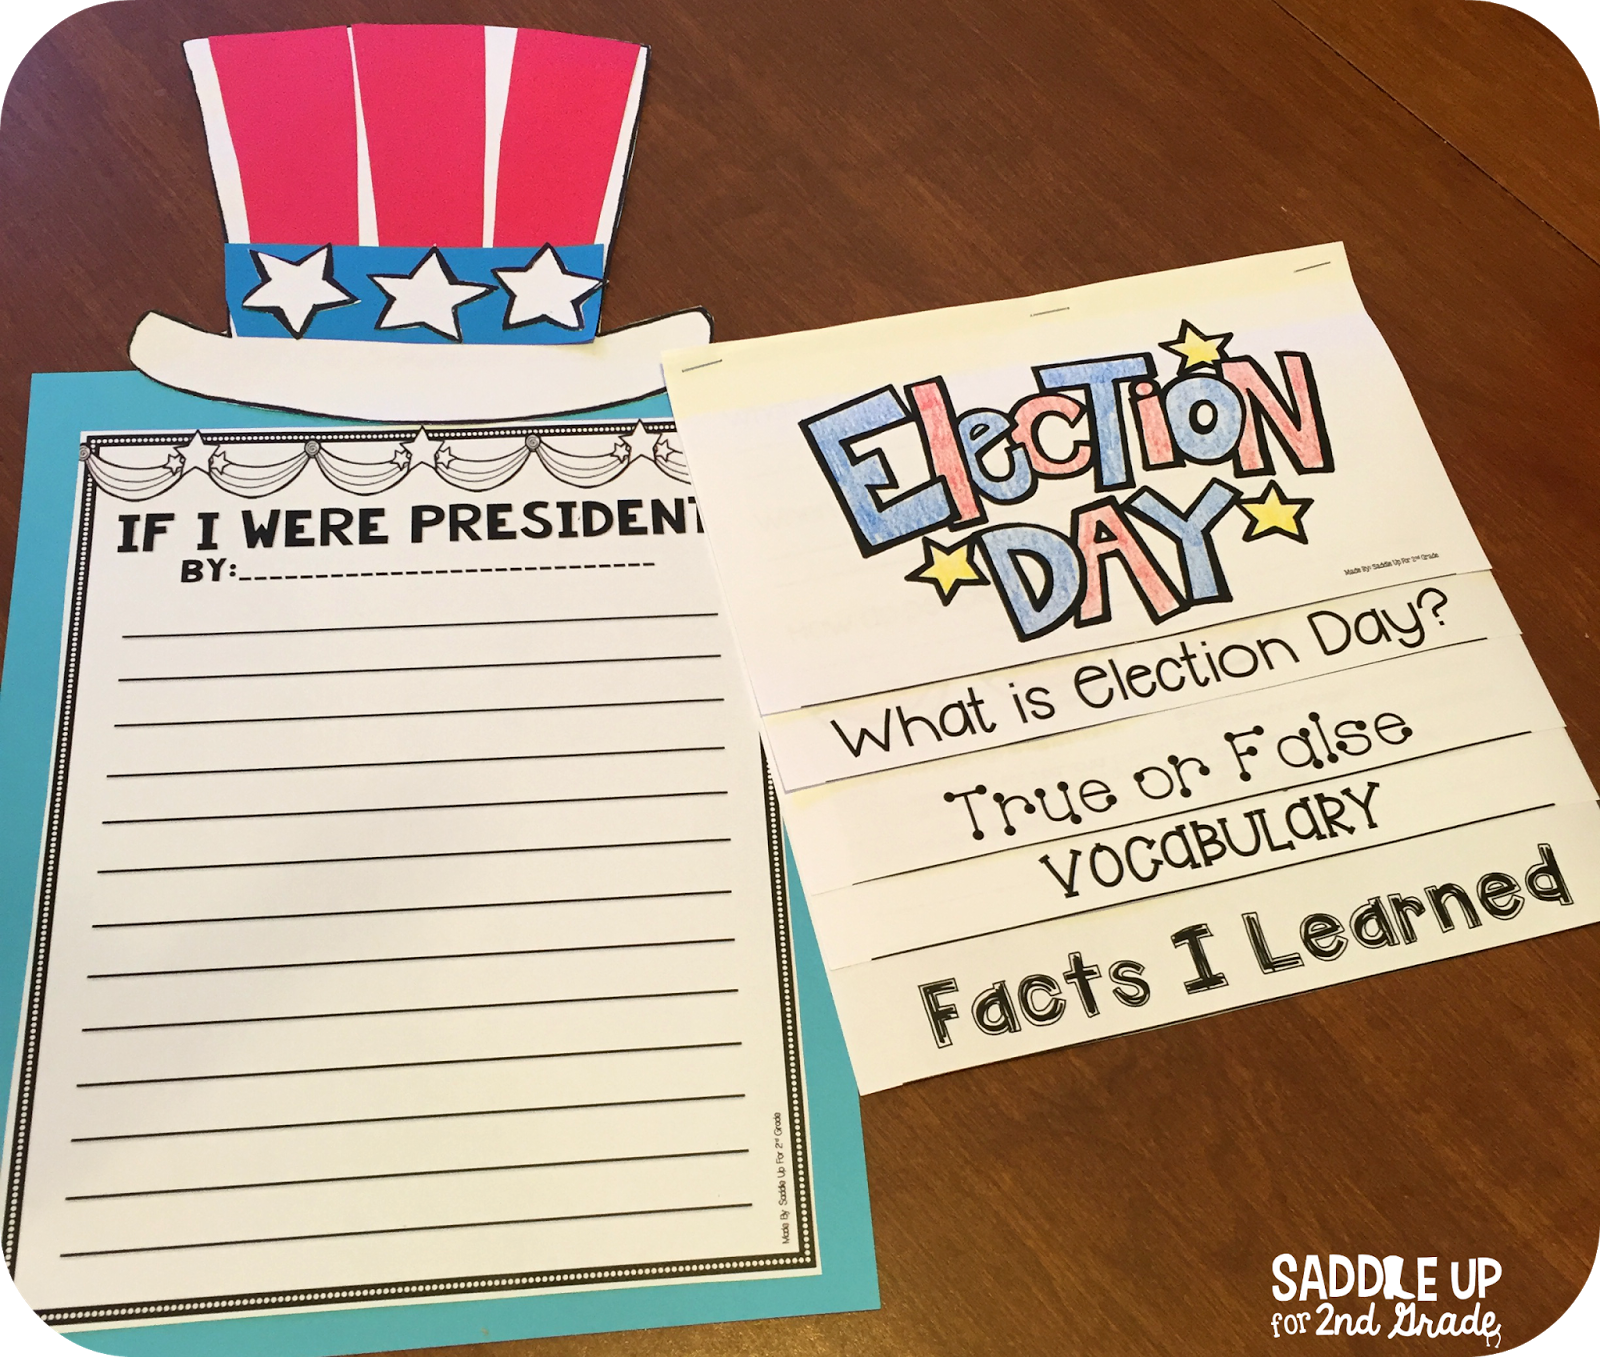 IF I WERE PRESIDENT
BY:
Made By: Saddle Up For 2nd Grade
ELECTION
DAY
Made By: Saddle Up For 2nd Grade
What is Election Day?
True or False
VOCABULARY
Facts I Learned
SADDLE UP
for 2nd Grade